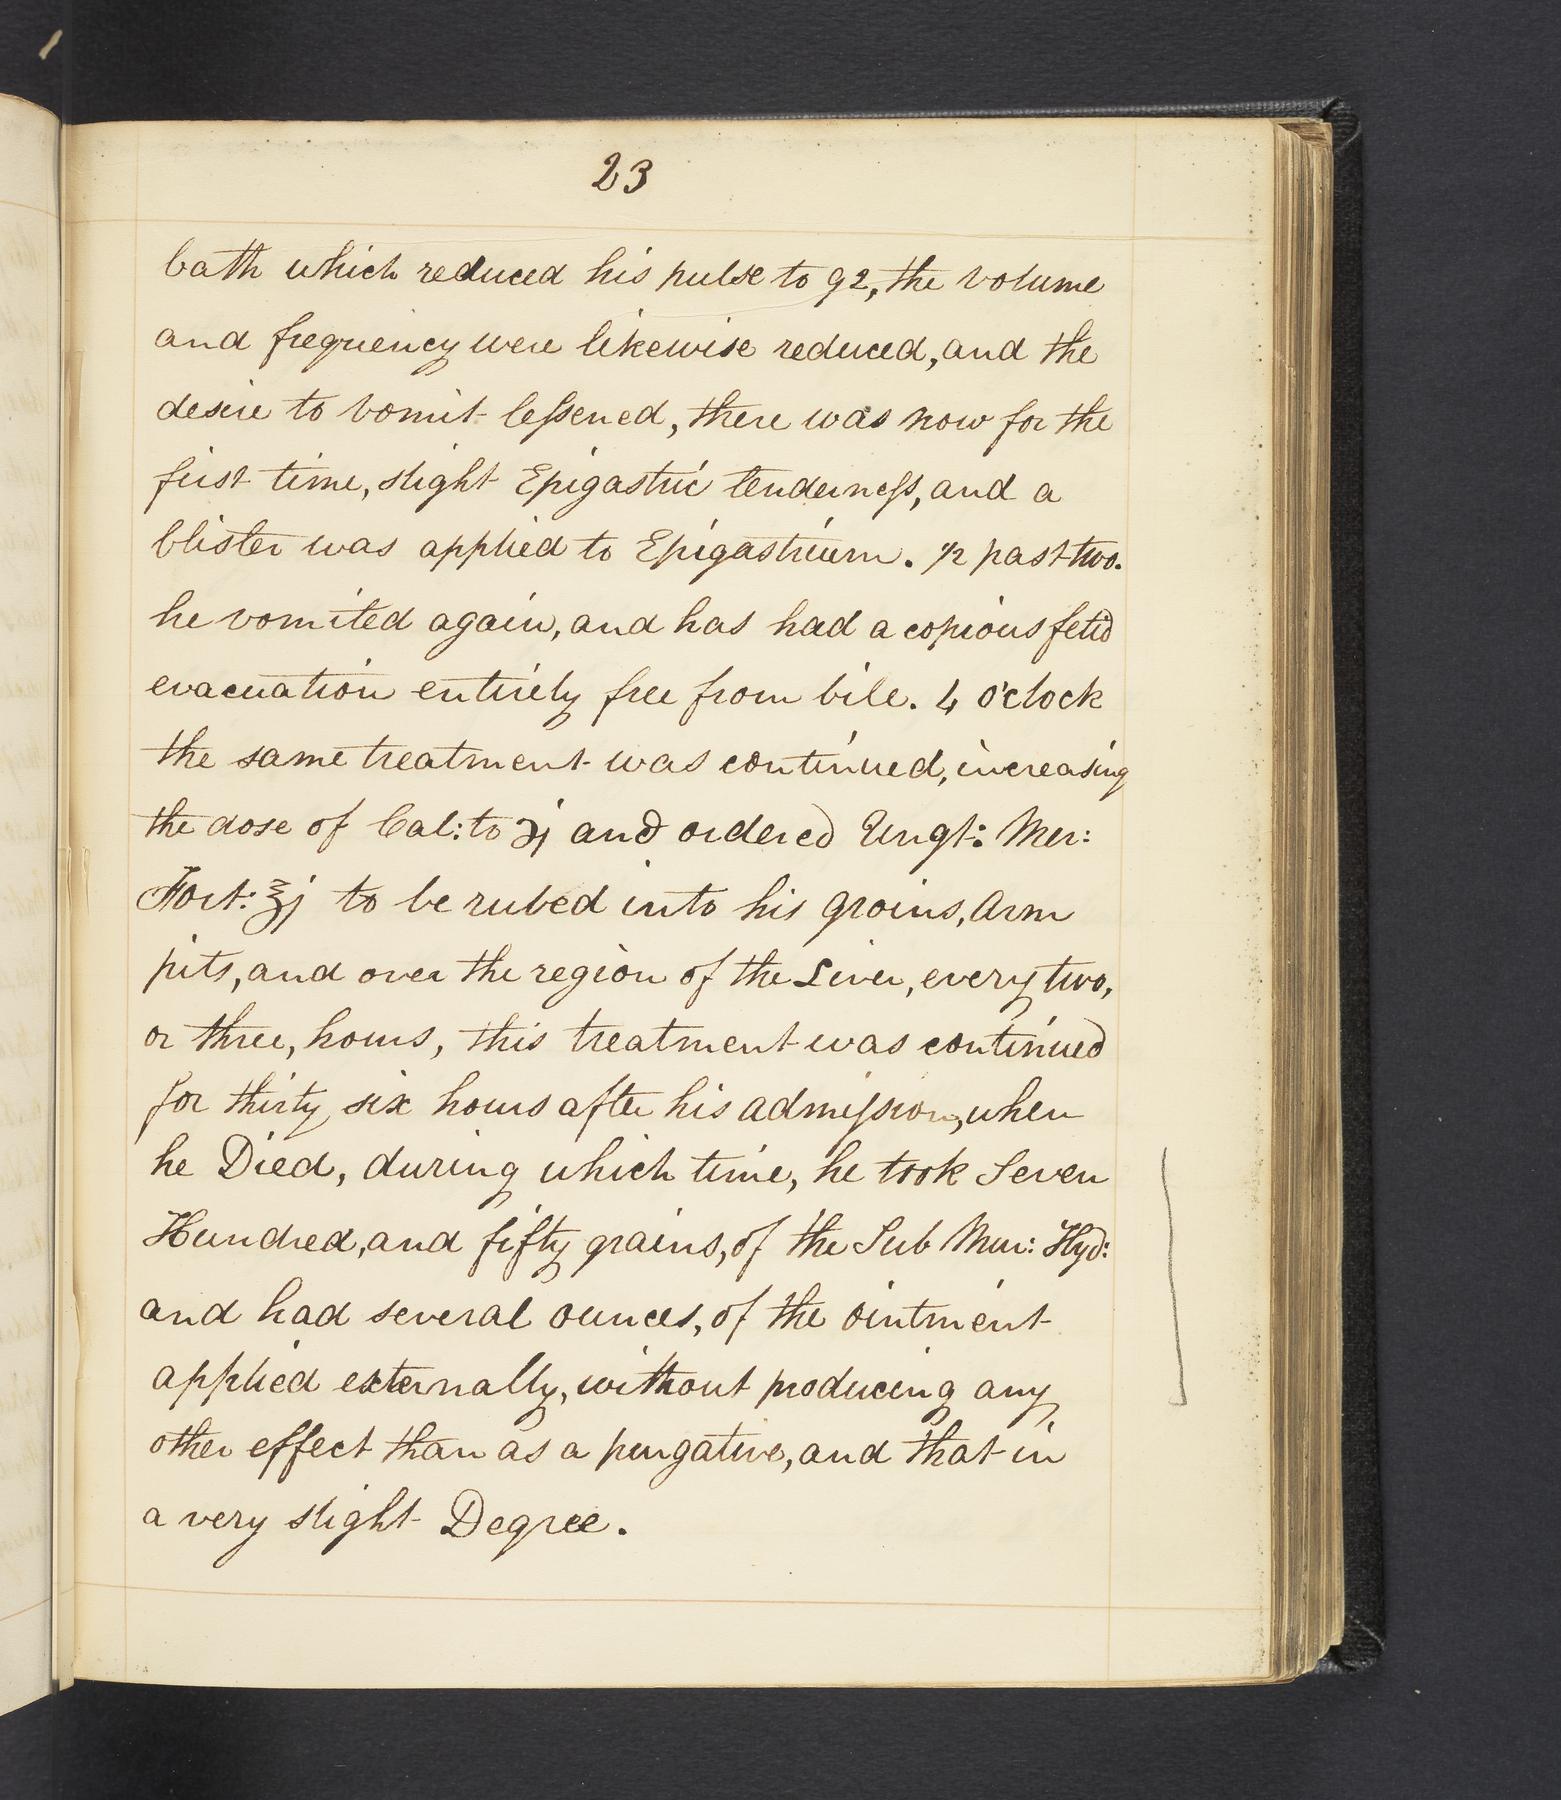 23
bath which reduced his pulse to 92, the volume
and frequency were likewise reduced, and the
desire to vomit leſsened, there was now for the
first time, slight Epigastric tenderneſs, and a
blister was applied to Epigastrium. ½ past two.
he vomited again, and has had a copious fetid
evacuation entirely free from bile. 4 o'clock
the same treatment was continued, increasing
the dose of Cal: to ℈j and ordered Ungt: Mer:
Fort: ℥j to be rubed into his groins, Arm
pits, and over the region of the Liver, every two,
or three, hours, this treatment was continued
for thirty six hours after his admiſsion, when
he Died, during which time, he took Seven
Hundred, and fifty grains, of the Sub Mur: Hyd:
and had several ounces, of the ointment
applied externally, without producing any
other effect than as a purgative, and that in
a very slight Degree.